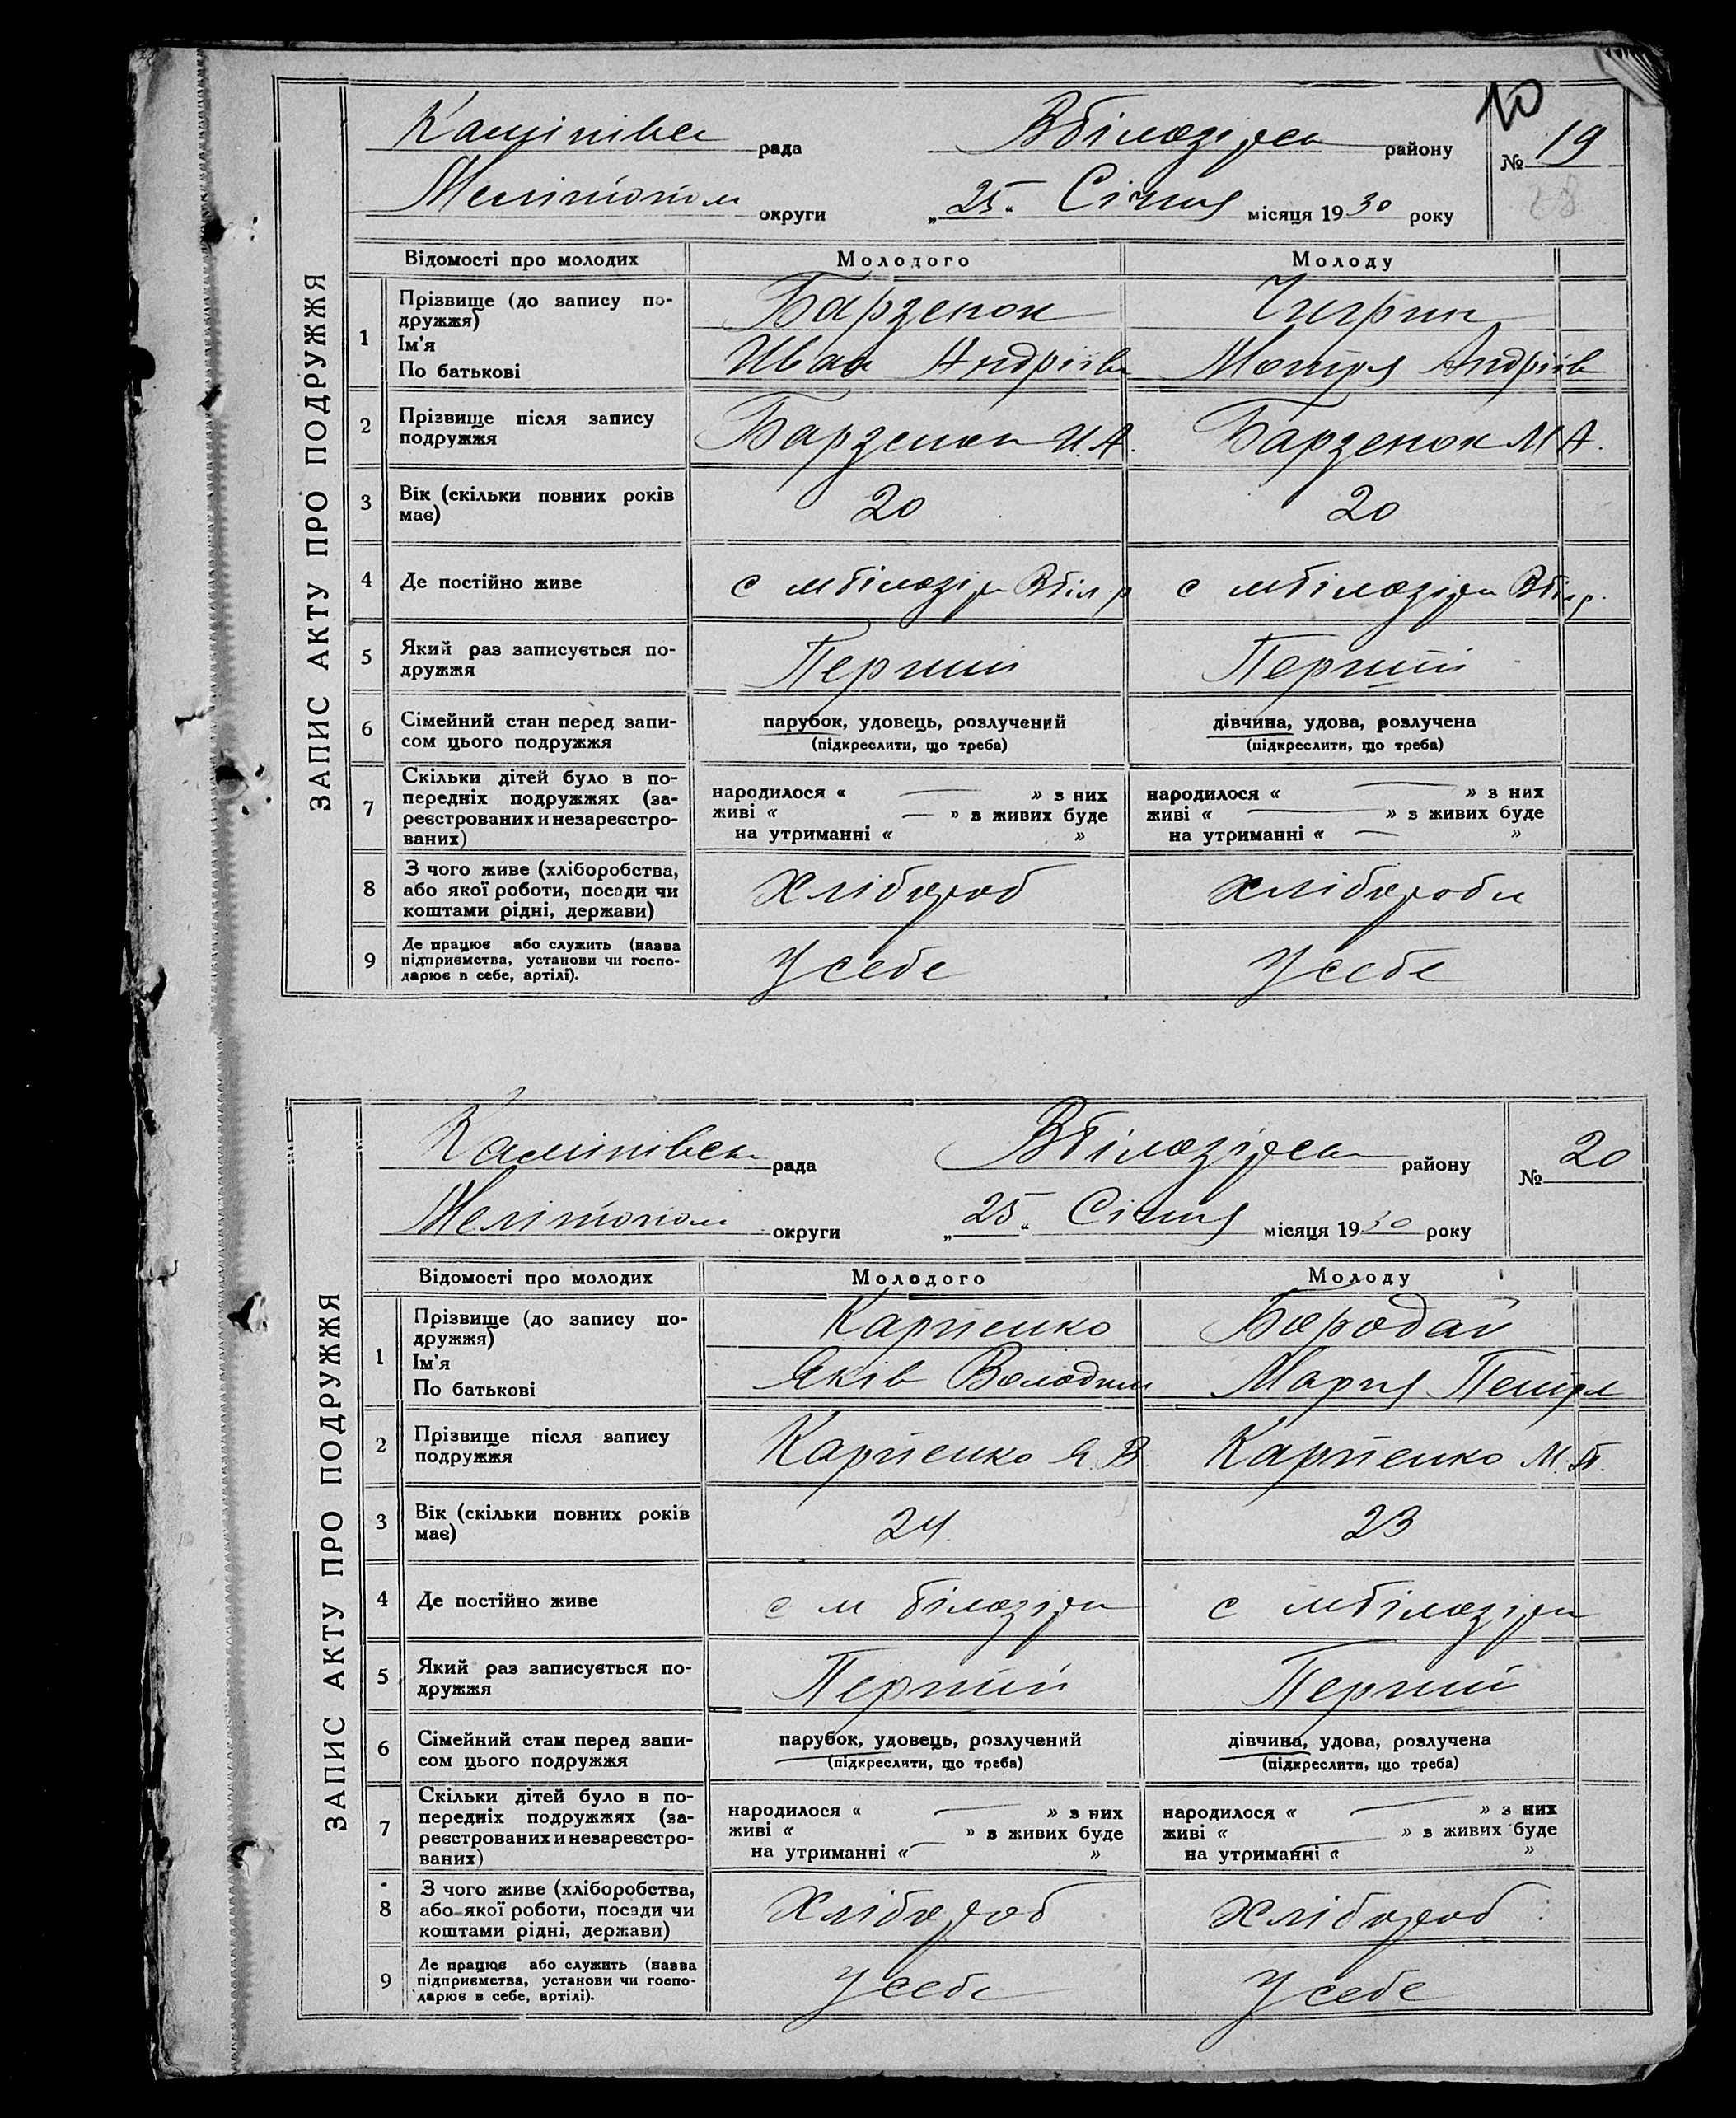 10
рада Вбілозірск району
№ 19
Мелітопол округи „25“ Січня місяця 1930 року
28
ЗАПИС АКТУ ПРО ПОДРУЖЖЯ
Відомості про молодих Молодого Молоду
1 Прізвище (до запису по-
дружжя)
Ім'я
По батькові
Барзенок Чигрин
Иван Андріів Мотря Андріів
2 Прізвище після запису
подружжя
Барзенок И.А. Барзенок М А.
3 Вік (скільки повних років
має)
20 20
4 Де постійно живе с мбілозірк Вбіл р с мбілозірк Вбілр.
5 Який раз записується по-
дружжя
Перший Перший
6 Сімейний стан перед запи-
сом цього подружжя
парубок, удовець, розлучений
(підкреслити, що треба)
дівчина, удова, розлучена
(підкреслити, що треба)
7 Скільки дітей було в по-
передніх подружжях (за-
реєстрованих и незареєстро-
ваних)
народилося « — » з них
живі « — » з живих буде
на утриманні « »
народилося « — » з них
живі « — » з живих буде
на утриманні « — »
8 З чого живе (хліборобства,
або якої роботи, посади чи
коштами рідні, держави)
Хлібороб Хлібороби
9 Де працює або служить (назва
підприємства, установи чи госпо-
дарює в себе, артілі).
У себе У себе
рада Вбілозірск району
№ 20
Мелітопол округи „25“ Січня місяця 1930 року
ЗАПИС АКТУ ПРО ПОДРУЖЖЯ
Відомості про молодих Молодого Молоду
1 Прізвище (до запису по-
дружжя)
Ім'я
По батькові
Карпенко Бородай
Яків Володим Мария Петров
2 Прізвище після запису
подружжя
Карпенко Я.В. Карпенко М.П.
3 Вік (скільки повних років
має)
24 23
4 Де постійно живе с м білозірк с мбілозірк
5 Який раз записується по-
дружжя
Перший Перший
6 Сімейний стан перед запи-
сом цього подружжя
парубок, удовець, розлучений
(підкреслити, що треба)
дівчина, удова, розлучена
(підкреслити, що треба)
7 Скільки дітей було в по-
передніх подружжях (за-
реєстрованих и незареєстро-
ваних)
народилося « — » з них
живі « » з живих буде
на утриманні « — »
народилося « — » з них
живі « » з живих буде
на утриманні « — »
8 З чого живе (хліборобства,
або якої роботи, посади чи
коштами рідні, держави)
Хлібороб Хлібороб
9 Де працює або служить (назва
підприємства, установи чи госпо-
дарює в себе, артілі).
У себе У себе